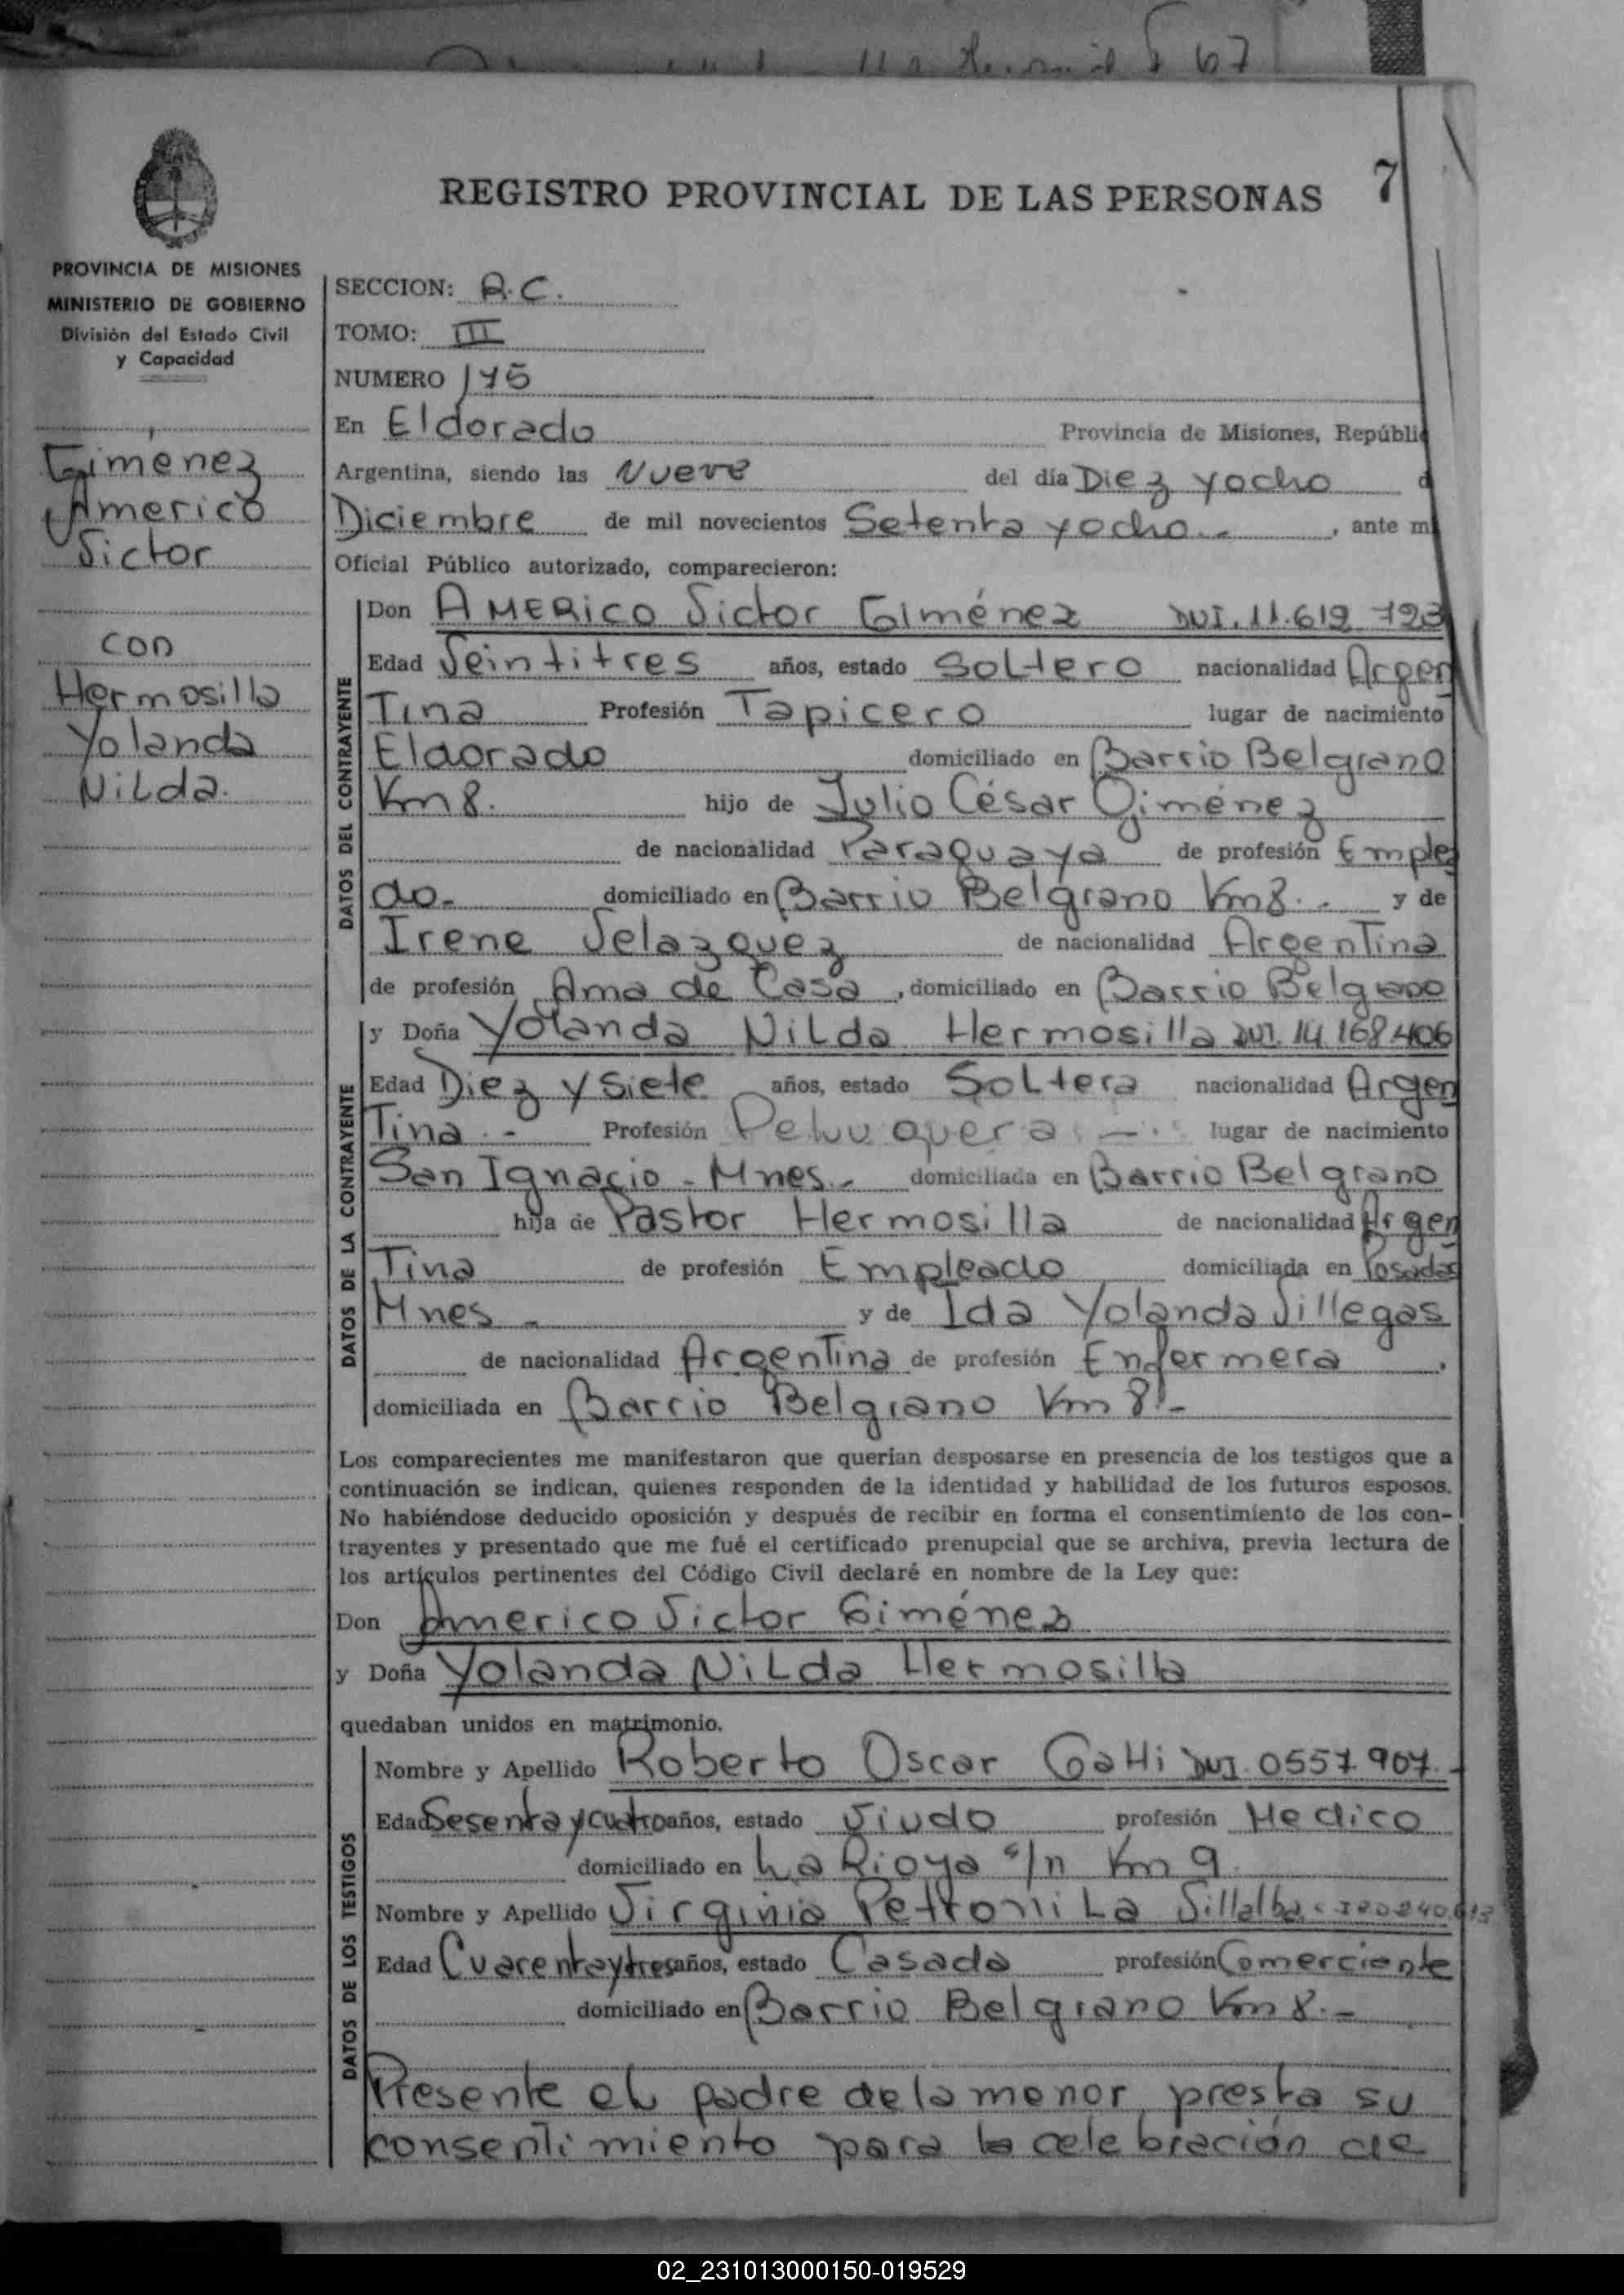 7
REGISTRO PROVINCIAL DE LAS PERSONAS
PROVINCIA DE MISIONES
MINISTERIO DE GOBIERNO
División del Estado Civil
y Capacidad
Gimenez
Americo
Victor
con
Hermosilla
Yolanda
Nilda.
SECCION: A.C.
TOMO: III
NUMERO 175
En Eldorado Provincia de Misiones, Repúbli
Argentina, siendo las Nueve del día Diez y ocho d
Diciembre de mil novecientos Setenta y ocho.-, ante m
Oficial Público autorizado, comparecieron:
DATOS DEL CONTRAYENTE
Don AMERICO Victor Giménez DNI. 11.619 723
Edad Veintitres años, estado Soltero nacionalidad Argen
Tina Profesión Tapicero lugar de nacimiento
Eldorado domiciliado en Barrio Belgrano
Km 8. hijo de Julio César Giménez
de nacionalidad Paraguaya de profesión Emplea
do.- domiciliado en Barrio Belgrano Km 8.- y de
Irene Velazquez de nacionalidad Argentina
de profesión Ama de Casa, domiciliado en Barrio Belgrano
DATOS DE LA CONTRAYENTE
y Doña Yolanda Nilda Hermosilla DNI. 14 168 406
Edad Diez y Siete años, estado Soltera nacionalidad Argen
Tina.- Profesión Peluquera.-. lugar de nacimiento
San Ignacio - Mnes.- domiciliada en Barrio Belgrano
hija de Pastor Hermosilla de nacionalidad Argen
Tina de profesión Empleado domiciliada en Posadas
Mnes.- y de Ida Yolanda Villegas
de nacionalidad Argentina de profesión Enfermera,
domiciliada en Barrio Belgrano Km 8.-
Los comparecientes me manifestaron que querían desposarse en presencia de los testigos que a
continuación se indican, quienes responden de la identidad y habilidad de los futuros esposos.
No habiéndose deducido oposición y después de recibir en forma el consentimiento de los con-
trayentes y presentado que me fué el certificado prenupcial que se archiva, previa lectura de
los artículos pertinentes del Código Civil declaré en nombre de la Ley que:
Don Americo Victor Giménez
y Doña Yolanda Nilda Hermosilla
quedaban unidos en matrimonio.
DATOS DE LOS TESTIGOS
Nombre y Apellido Roberto Oscar Gatti DNI. 0557.907.-
Edad Sesenta y cuatro años, estado Viudo profesión Medico
domiciliado en La Rioja s/n Km 9.
Nombre y Apellido Virginia Petroni La Villalba
Edad Cuarenta y tres años, estado Casada profesión Comerciante
domiciliado en Barrio Belgrano Km 8.-
Presente el padre de la menor presta su
consentimiento para la celebración de
02_231013000150-019529